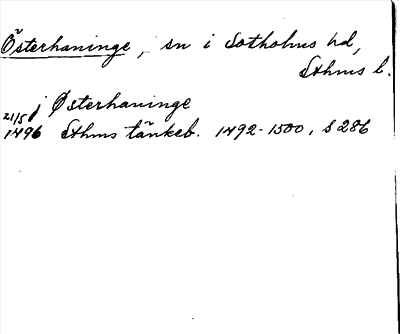 Österhaninge, sn i Sotholms hd,
Sthms l.
j Østerhaninge
21/5 1496 Sthms tänkeb. 1492-1500, s 286